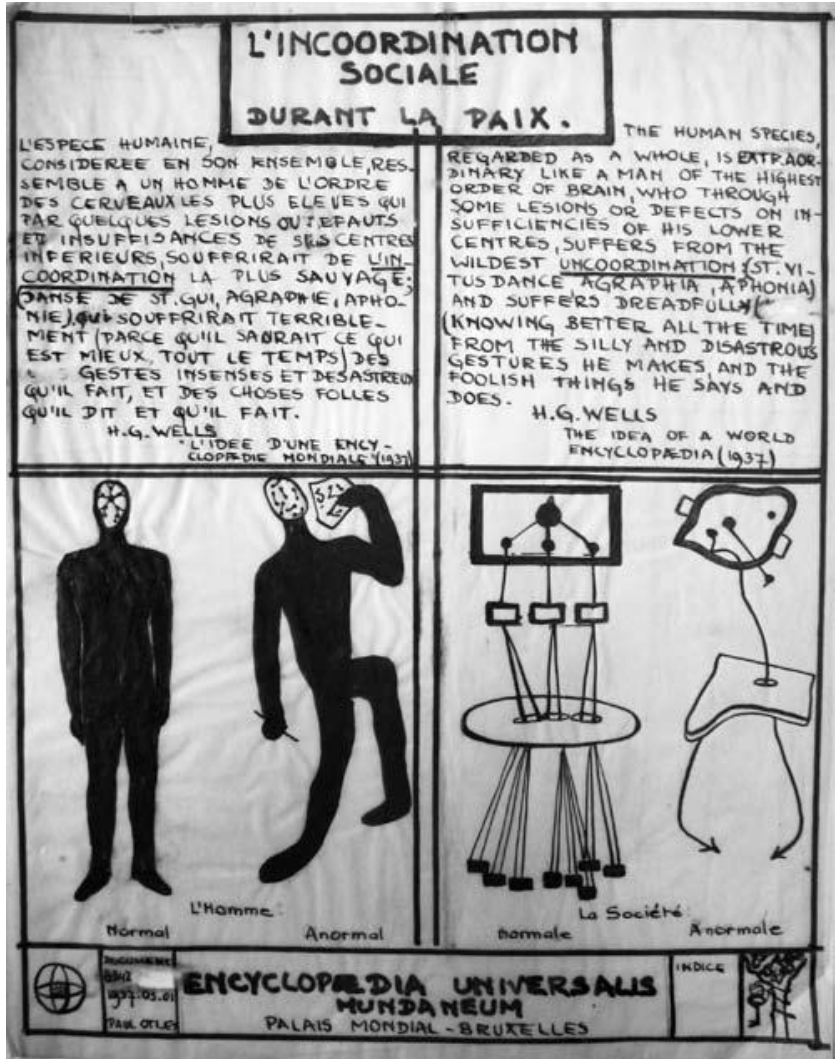 L'INCOORDINATION
SOCIALE
DURANT LA PAIX.
L'ESPECE HUMAINE,
CONSIDEREE EN SON ENSEMBLE, RES-
SEMBLE A UN HOMME DE L'ORDRE
DES CERVEAUX LES PLUS ELEVES QUI
PAR QUELQUES LESIONS OU DEFAUTS
ET INSUFFISANCES DE SES CENTRES
INFERIEURS, SOUFFRIRAIT DE L'IN-
COORDINATION LA PLUS SAUVAGE;
(DANSE DE ST. GUI, AGRAPHIE, APHO-
NIE), QUI SOUFFRIRAIT TERRIBLE-
MENT (PARCE QU'IL SAURAIT CE QUI
EST MIEUX, TOUT LE TEMPS) DES
GESTES INSENSES ET DESASTREUX
QU'IL FAIT, ET DES CHOSES FOLLES
QU'IL DIT ET QU'IL FAIT.
H.G. WELLS
"L'IDEE D'UNE ENCY-
CLOPÆDIE MONDIALE" (1937)
THE HUMAN SPECIES,
REGARDED AS A WHOLE, IS EXTRAOR-
DINARY LIKE A MAN OF THE HIGHEST
ORDER OF BRAIN, WHO THROUGH
SOME LESIONS OR DEFECTS ON IN-
SUFFICIENCIES OF HIS LOWER
CENTRES, SUFFERS FROM THE
WILDEST UNCOORDINATION; (ST. VI-
TUS DANCE, AGRAPHIA, APHONIA)
AND SUFFERS DREADFULLY
(KNOWING BETTER ALL THE TIME)
FROM THE SILLY AND DISASTROUS
GESTURES HE MAKES, AND THE
FOOLISH THINGS HE SAYS AND
DOES.
H.G. WELLS
THE IDEA OF A WORLD
ENCYCLOPÆDIA (1937)
L'Homme:
Normal
Anormal
La Société:
Normale
Anormale
DOCUMENT
1937.05.01
PAUL OTLET
ENCYCLOPÆDIA UNIVERSALIS
MUNDANEUM
PALAIS MONDIAL - BRUXELLES
INDICE